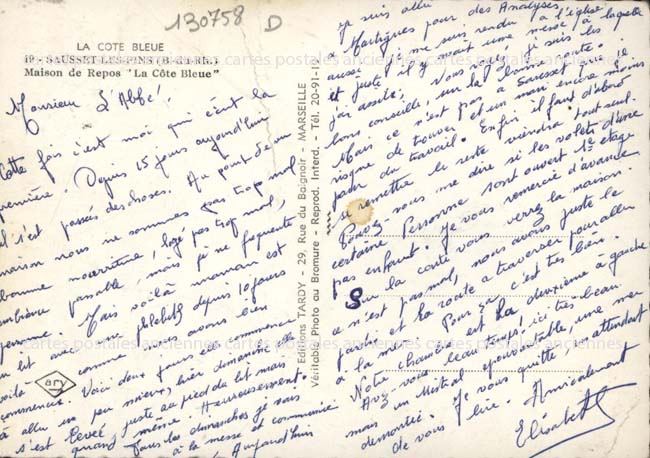 130758 D
LA COTE BLEUE
19. - SAUSSET-LES-PINS (B.-du-Rh.)
Maison de Repos "La Côte Bleue"
Monsieur L'Abbé!
Cette fois c'est moi qui écrit la
première. Depuis 15 jours aujourd'hui
il s'est passés des choses. Au point de vu
maison nous ne sommes pas trop mal
bonne nourriture, logé pas trop mal,
ambiance passable, mais je ne fréquente
personne. Mais voilà maman est
au lit avec phlébite depuis 10 jours
voilà comme nous avons bien
commencés. Voici deux jours elle commence
à allu un peu mieux, hier dimanche elle
s'est levée juste au pied du lit mais
quand même. Heureusement.
Tous les dimanches je vais
à la messe et communié
Aujourd'hui
ça suis allu
à Martigues pour des Analyses
aussi je me suis rendu à l'église
et juste il y avait une messe à laquelle
j'ai assité. Vous voyez je suis les
bons conseille, sur la bonne route.
Mais ce n'est pas a Sausset que je
risque de trouver un mari encore moins
pour du travail. Enfin il faut d'abord
se remettre le reste viendra tout seul.
Pouvez vous me dire si les volets d'une
certaine Personne sont ouvert 1e étage
pas enfant. Je vous remercie d'avance
Sur la carte vous verrez la maison.
ce n'est pas mal, nous avons juste le
parc et la route a traverser pour aller
à la mer. Pour ça c'est très bien.
Notre chambre est la deuxième à gauche
Avez-vous beau temps, ici très beau.
mais un Mistral épouvantable, une mer
démontée. Je vous quitte, en attendant
de vous lire. Amicalement
Elisabeth
8
Editions TARDY - 29, Rue du Baignoir - MARSEILLE
Véritable Photo au Bromure - Reprod. Interd. - Tél. 20-91-1
ary
cartes postales anciennes cartes postales anciennes cartes postales anciennes